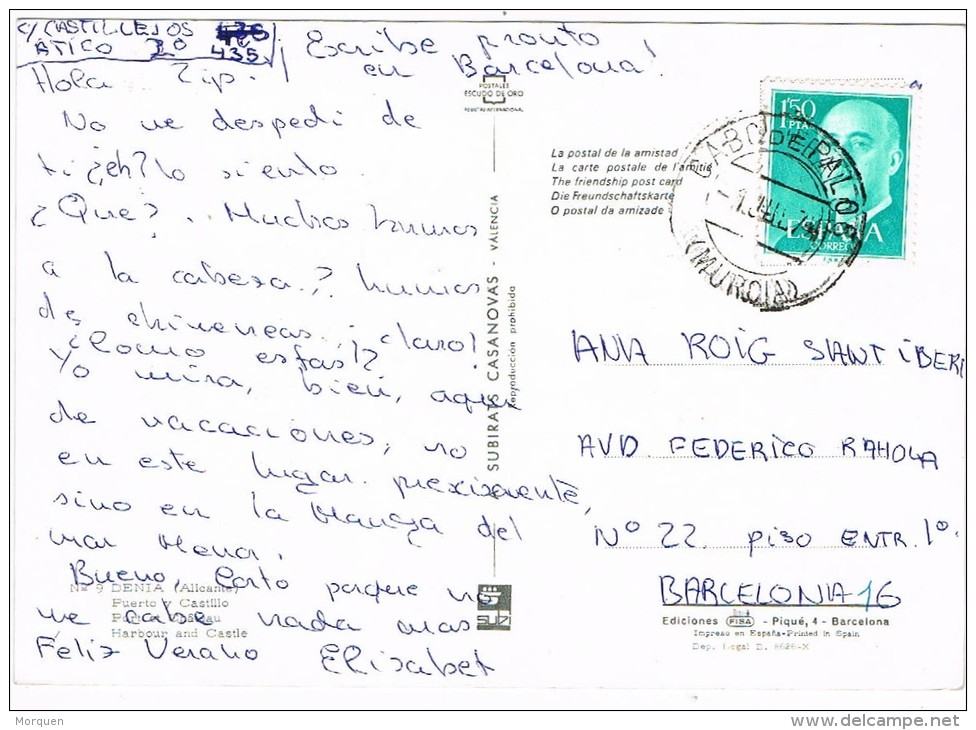 C/ CASTILLEJOS
ATICO 2º 435
Escribe pronto
en Barcelona!
Hola Zip.
No me despedi de
ti ¿eh? lo siento.
¿Que? .. Muchos humos
a la cabesa..? humos
de chimeneas.. ¡claro!
¿Como estas!?
Yo mira, bien, aqui
de vacaciones, no
en este lugar prexisamente,
sino en la Manga del
mar Menor.
Bueno, Corto porque no
me cabe nada mas
Feliz Verano Elisabet
POSTALES
ESCUDO DE ORO
REGISTRO INTERNACIONAL
La postal de la amistad
La carte postale de l'amitié
The friendship post card
Die Freundschaftskarte
O postal da amizade
1'50
PTA
ESPAÑA
CORREOS
CABO DE PALOS
(MURCIA)
SUBIRATS CASANOVAS - VALENCIA
Reproducción prohibida
ANA ROIG SANTIBERI
AVD FEDERICO RAHOLA
Nº 22 PISO ENTR. 1º
BARCELONA 16
Nº 9 DENIA (Alicante)
Puerto y Castillo
Port et Château
Harbour and Castle
SUZI
Ediciones FISA - Piqué, 4 - Barcelona
Impreso en España-Printed in Spain
Dep. Legal B. 8626-X
Morquen
delcampe.net